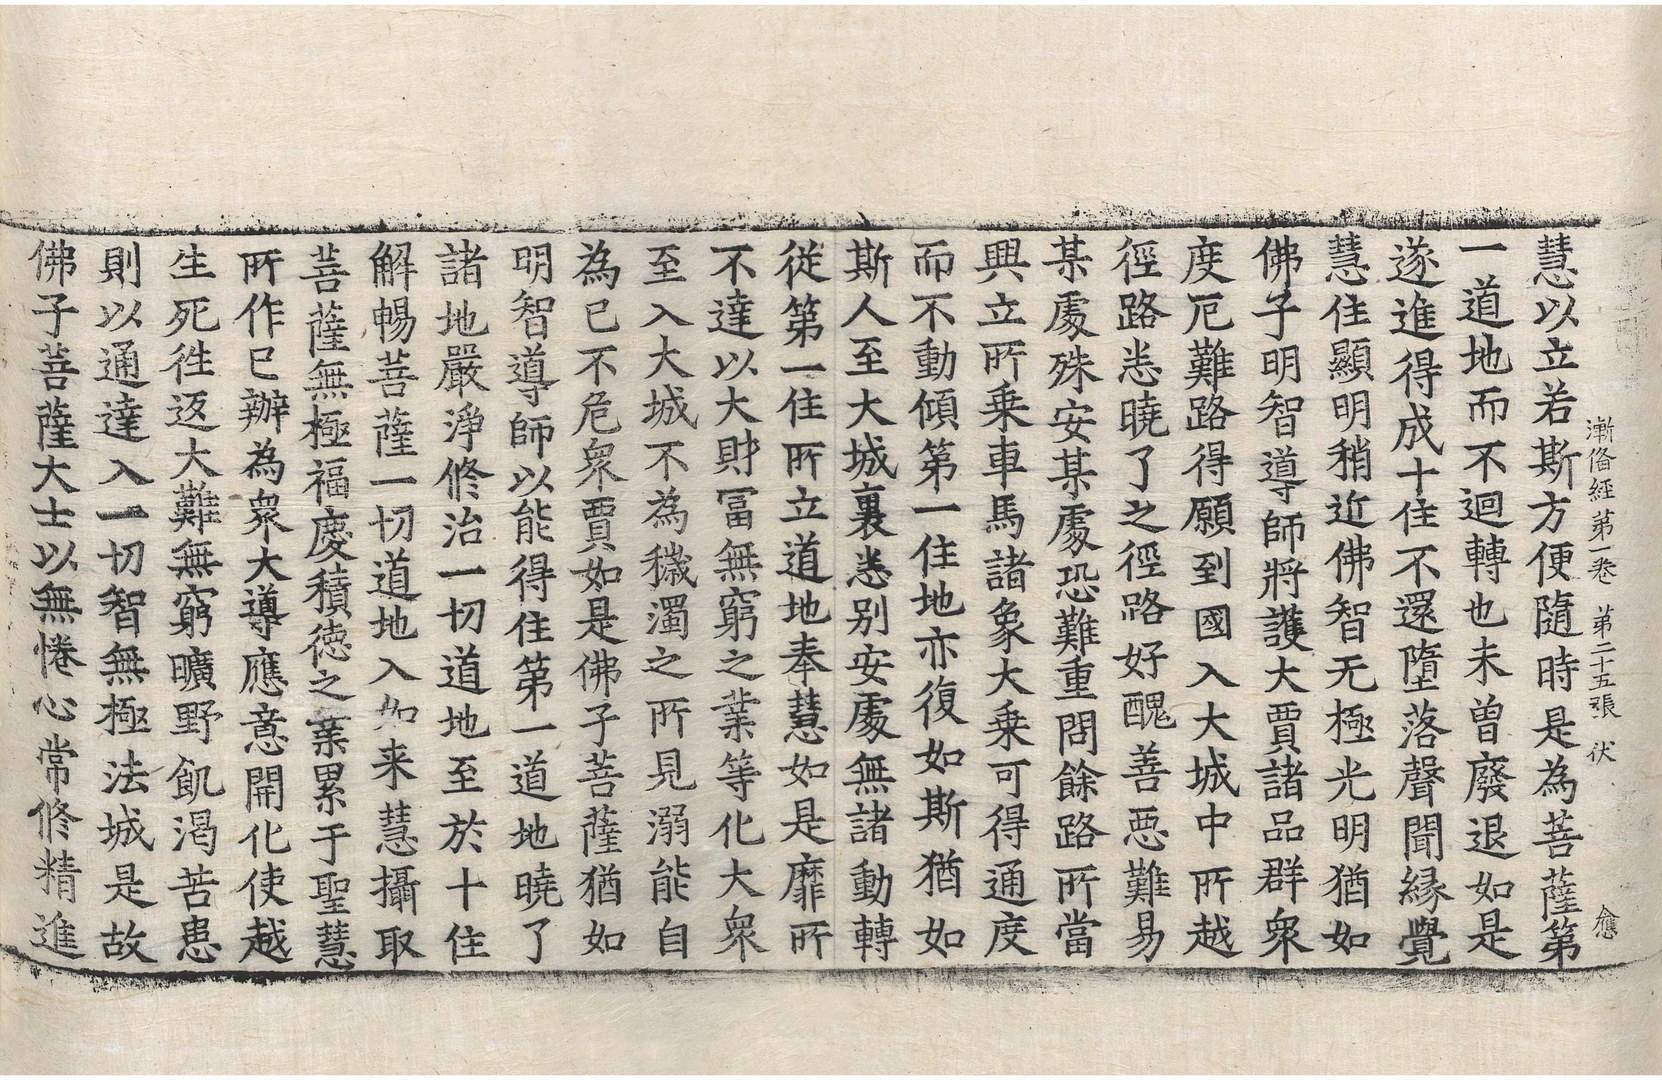 漸俻經第一卷　第二十五張　伏
慧以立若斯方便隨時是為菩薩第
一道地而不迴轉也未曾廢退如是
遂進得成十住不還墮落聲聞縁覺
慧住顯明稍近佛智无極光明猶如
佛子明智導師將護大賈諸品群衆
度厄難路得願到國入大城中所越
徑路恙曉了之徑路好醜善惡難易
某處殊安某處恐難重問餘路所當
興立所乗車馬諸象大乗可得通度
而不動傾第一住地亦復如斯猶如
斯人至大城裏恙别安處無諸動轉
従第一住所立道地奉慧如是靡所
不達以大財冨無窮之業等化大衆
至入大城不為穢濁之所見溺能自
為已不危衆賈如是佛子菩薩猶如
明智導師以能得住第一道地曉了
諸地嚴淨修治一切道地至於十住
解暢菩薩一切道地入如来慧攝取
菩薩無極福慶積德之業累于聖慧
所作已辦為衆大導應意開化使越
生死徃返大難無窮曠野飢渇苦患
則以通達入一切智無極法城是故
佛子菩薩大士以無惓心常修精進